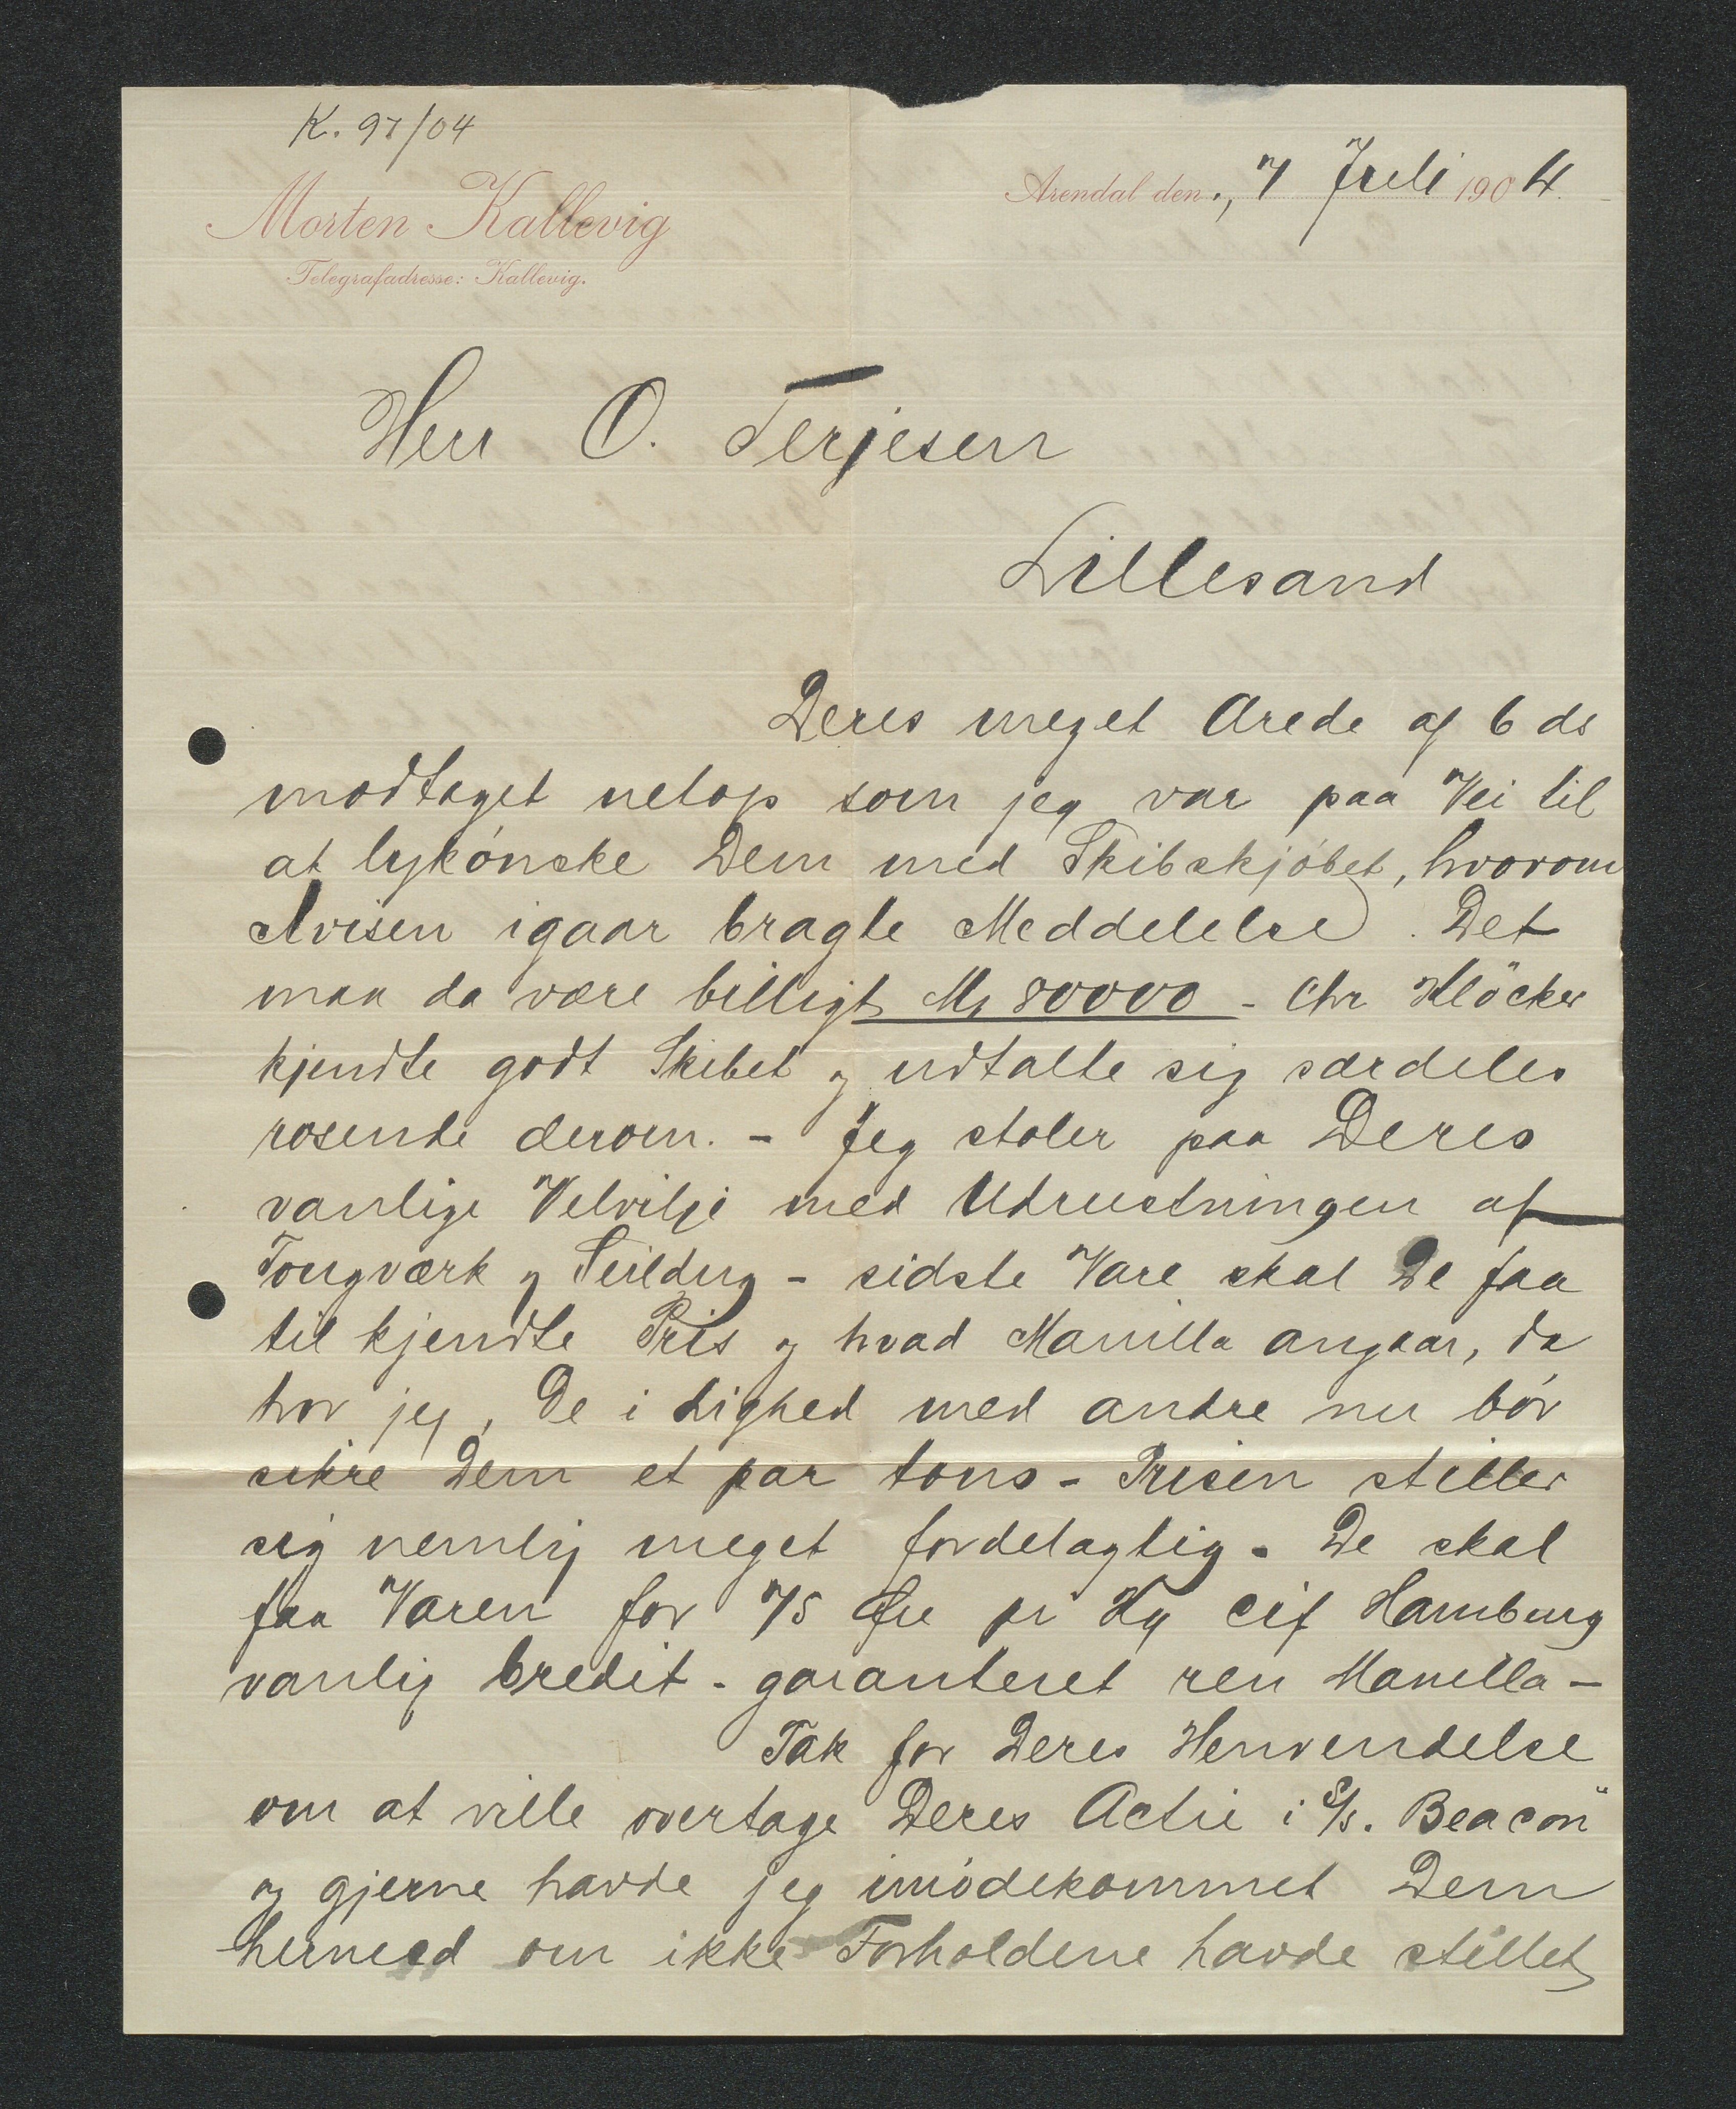 K. 97/04
Morten Kallevig
Telegrafadresse: Kallevig.
Arendal den 7 Juli 1904.
Herr O. Terjesen
Lillesand
Deres meget Ærede af 6 ds
modtaget netop som jeg var paa Vei til
at lykönske Dem med Skibskjöbet, hvorom
Avisen igaar bragte Meddelelse. Det
maa da være billigt M, 80000 - Chr Klöcker
kjendte godt Skibet og udtalte sig særdeles
rosende derom. - Jeg stoler paa Deres
vanlige Velvilje med Udrustningen af
Tougværk og Seildug - sidste Vare skal De faa
til kjendte Pris og hvad Manilla angaar, da
tror jeg, De i Lighed med andre nu bör
sikre Dem et par tons - Prisen stiller
sig nemlig meget fordelagtig. De skal
faa Varen for 75 Øre pr Kg cif Hamburg
vanlig credit - garanteret ren Manilla -
Tak for Deres Henvendelse
om at ville overtage Deres Actie i S/s. Beacon"
og gjerne havde jeg imödekommet Dem
hermed om ikke Forholdene havde stillet